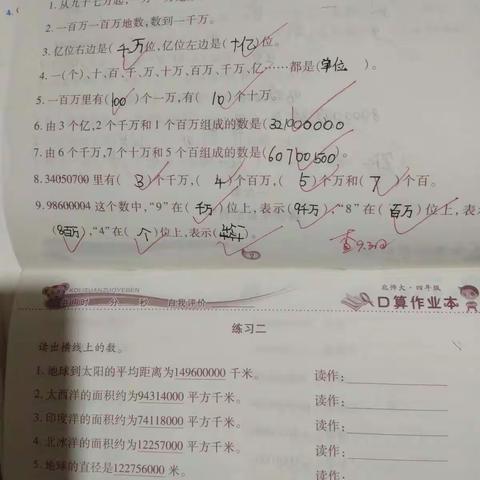 4.(
1. 从九十七万起,一万一万地
2. 一百万一百万地数,数到一千万。
3. 亿位右边是(千万)位,亿位左边是(十亿)位。
4. 一(个)、十、百、千、万、十万、百万、千万、亿……都是(单位)。
5. 一百万里有(100)个一万,有(10)个十万。
6. 由3个亿,2个千万和1个百万组成的数是(321000000)
7. 由6个千万,7个十万和5个百组成的数是(60700500)。
8. 34050700里有(3)个千万,(4)个百万,(5)个万和(7)个百。
9. 98600004这个数中,“9”在(千万)位上,表示(9千万),“8”在(百万)位上,表
(8百万),“4”在(个)位上,表示( )
查9.3日
KOUSUANZUOYEBEN
时 分 秒 自我评价
北师大·四年级
口算作业本
练习二
读出横线上的数。
1. 地球到太阳的平均距离为149600000千米。 读作:
2. 太西洋的面积约为94314000平方千米。 读作:
3. 印度洋的面积约为74118000平方千米。 读作:
4. 北冰洋的面积约为12257000平方千米。 读作:
5. 地球的直径是122756000米。 读作: